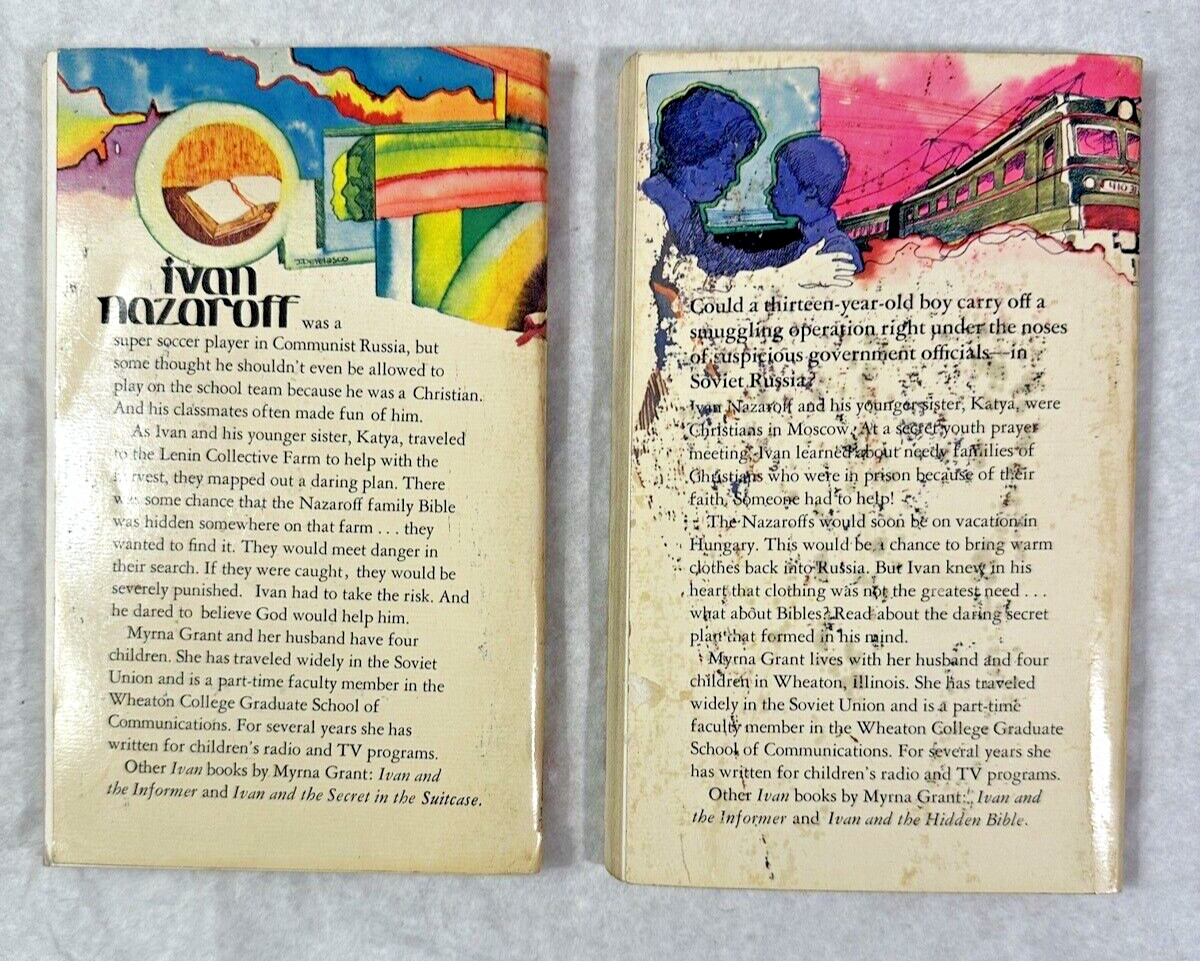 J. DeVelasco
ivan
nazaroff was a
super soccer player in Communist Russia, but
some thought he shouldn't even be allowed to
play on the school team because he was a Christian.
And his classmates often made fun of him.
As Ivan and his younger sister, Katya, traveled
to the Lenin Collective Farm to help with the
harvest, they mapped out a daring plan. There
was some chance that the Nazaroff family Bible
was hidden somewhere on that farm . . . they
wanted to find it. They would meet danger in
their search. If they were caught, they would be
severely punished. Ivan had to take the risk. And
he dared to believe God would help him.
Myrna Grant and her husband have four
children. She has traveled widely in the Soviet
Union and is a part-time faculty member in the
Wheaton College Graduate School of
Communications. For several years she has
written for children's radio and TV programs.
Other Ivan books by Myrna Grant: Ivan and
the Informer and Ivan and the Secret in the Suitcase.
Could a thirteen-year-old boy carry off a
smuggling operation right under the noses
of suspicious government officials—in
Soviet Russia?
Ivan Nazaroff and his younger sister, Katya, were
Christians in Moscow. At a secret youth prayer
meeting, Ivan learned about needy families of
Christians who were in prison because of their
faith. Someone had to help!
The Nazaroffs would soon be on vacation in
Hungary. This would be a chance to bring warm
clothes back into Russia. But Ivan knew in his
heart that clothing was not the greatest need . . .
what about Bibles? Read about the daring secret
plan that formed in his mind.
Myrna Grant lives with her husband and four
children in Wheaton, Illinois. She has traveled
widely in the Soviet Union and is a part-time
faculty member in the Wheaton College Graduate
School of Communications. For several years she
has written for children's radio and TV programs.
Other Ivan books by Myrna Grant: Ivan and
the Informer and Ivan and the Hidden Bible.